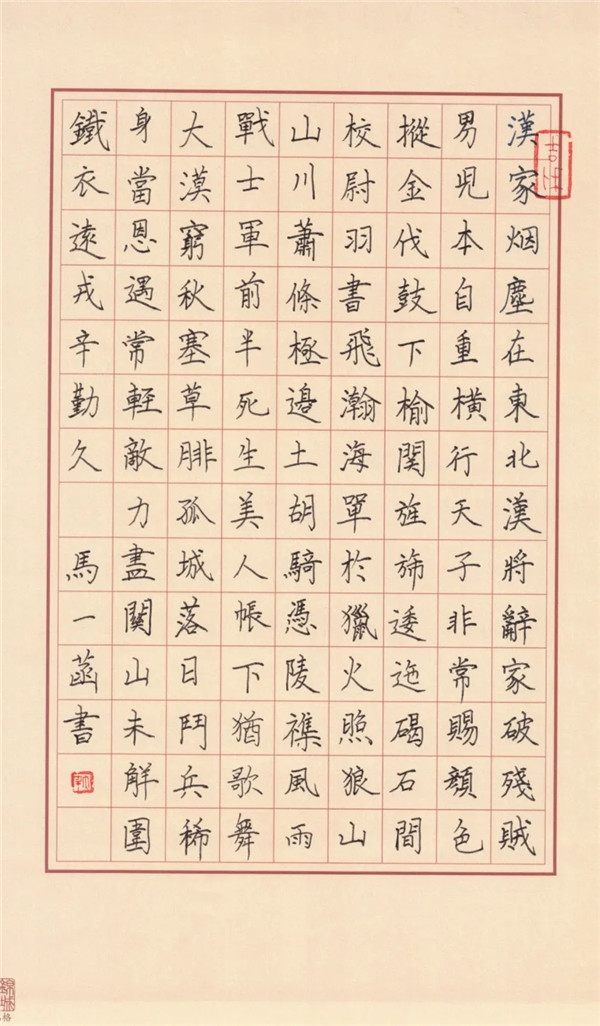 漢家烟塵在東北漢將辭家破殘賊
男児本自重橫行天子非常賜顏色
摐金伐鼓下榆関旌斾逶迤碣石間
校尉羽書飛瀚海單於獵火照狼山
山川蕭條極邊土胡騎憑陵襍風雨
戰士軍前半死生美人帳下猶歌舞
大漠窮秋塞草腓孤城落日鬥兵稀
身當恩遇常輕敵力盡関山未解圍
鐵衣遠戎辛勤久 馬一菡書
錦城